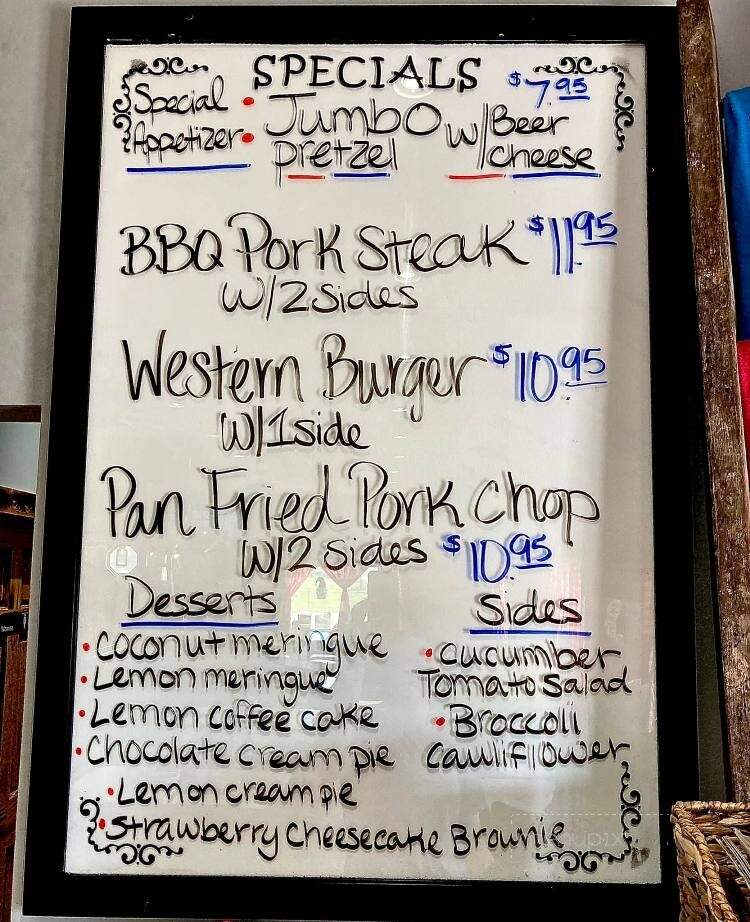 SPECIALS
Special Appetizer:
Jumbo pretzel w/Beer cheese $7.95
BBQ Pork Steak $11.95
w/2 sides
Western Burger $10.95
w/1 side
Pan Fried Pork Chop
w/2 sides $10.95
Desserts
• coconut meringue
• Lemon meringue
• Lemon coffee cake
• Chocolate cream pie
• Lemon cream pie
• Strawberry Cheesecake Brownie
Sides
• cucumber
Tomato Salad
• Broccoli
cauliflower